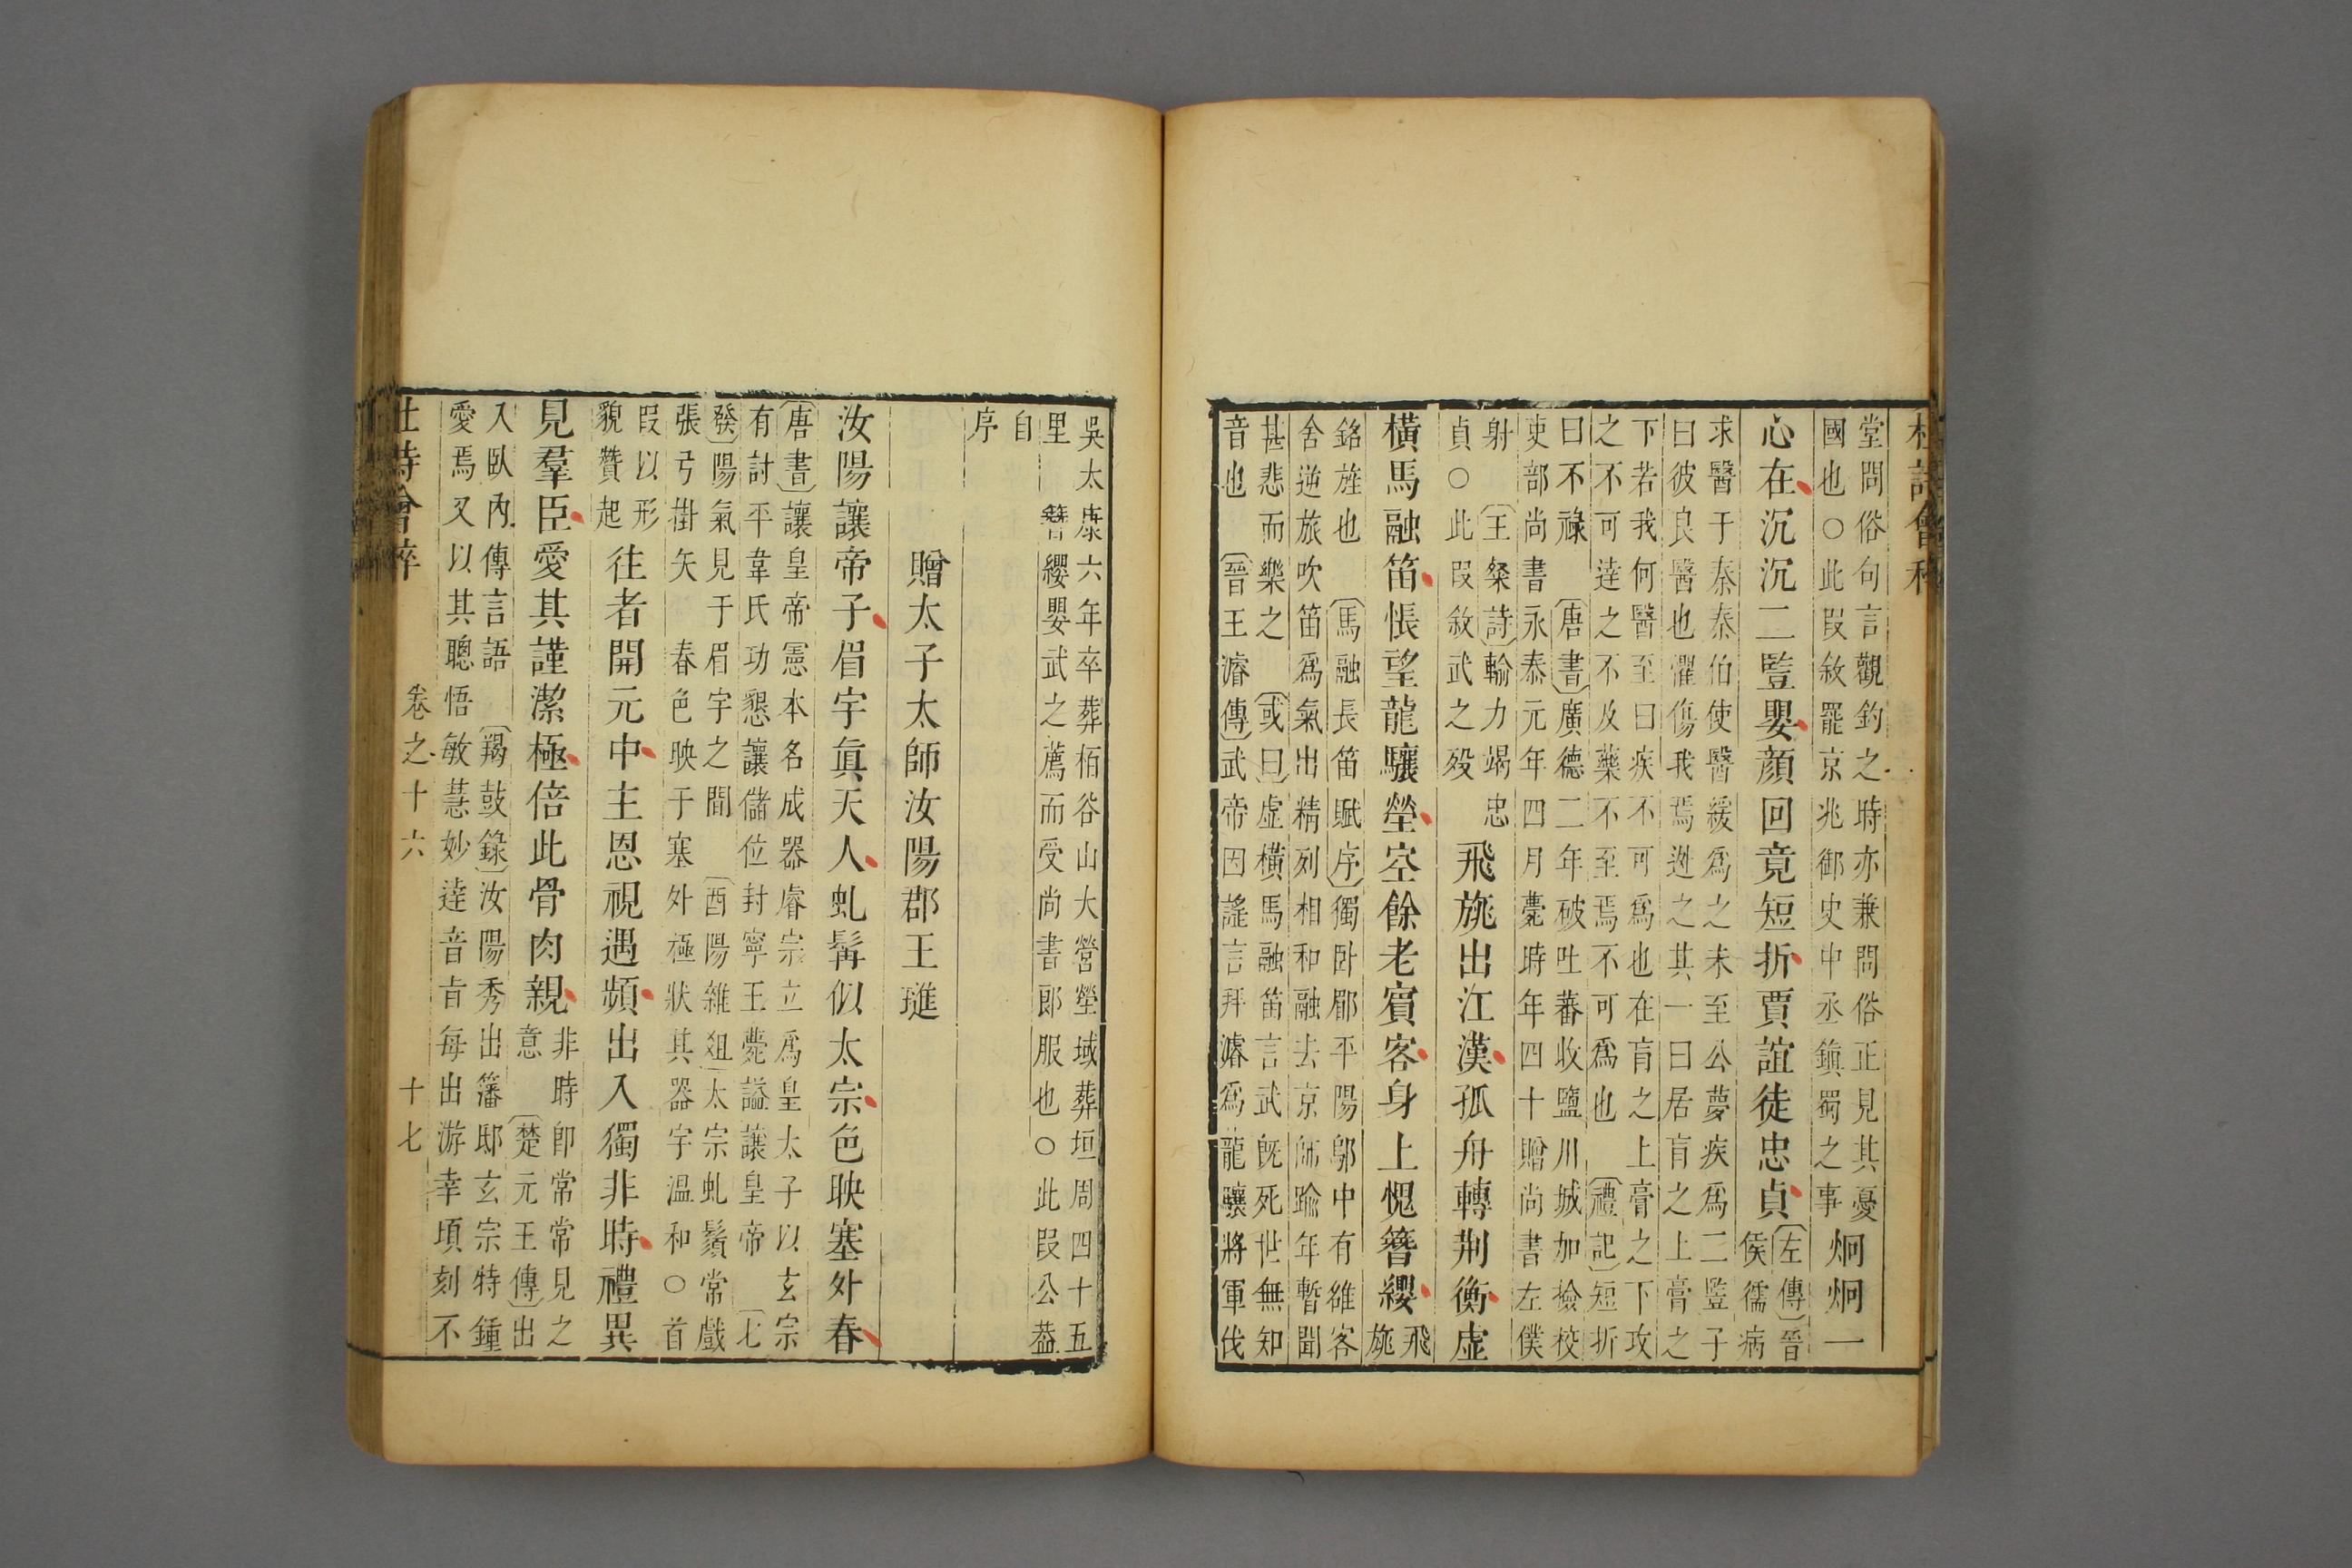 杜詩會稡
堂問俗句言觀釣之時亦兼問俗正見其憂
國也○此叚敘罷京兆御史中丞鎭蜀之事
炯炯一
心在沉沉二豎嬰顏回竟短折賈誼徒忠貞
〔左傳〕晉
侯孺病
求醫于秦秦伯使醫緩爲之未至公夢疾爲二豎子
曰彼良醫也懼傷我焉逃之其一曰居肓之上膏之
下若我何醫至曰疾不可爲也在肓之上膏之下攻
之不可達之不及藥不至焉不可爲也〔禮記〕短折
曰不祿〔唐書〕廣德二年破吐蕃收鹽川城加撿校
吏部尚書永泰元年四月薨時年四十贈尚書左僕
射〔王粲詩〕輸力竭忠
貞○此叚敘武之殁
飛旐出江漢孤舟轉荆衡虛
橫馬融笛悵望龍驤塋空餘老賓客身上愧簪纓
飛
旐
銘旌也〔馬融長笛賦序〕獨卧郿平陽鄔中有雒客
舍逆旅吹笛爲氣出精列相和融去京師踰年暫聞
甚悲而樂之〔或曰〕虛橫馬融笛言武旣死世無知
音也〔晉王濬傳〕武帝因謠言拜濬爲龍驤將軍伐
吳太康六年卒葬栢谷山大營塋域葬垣周四十五
里簪纓嬰武之薦而受尚書郎服也○此叚公葢
自
序
贈太子太師汝陽郡王璡
汝陽讓帝子眉宇眞天人虬髯似太宗色映塞外春
〔唐書〕讓皇帝憲本名成器睿宗立爲皇太子以玄宗
有討平韋氏功懇讓儲位封寧王薨謚讓皇帝〔七
發〕陽氣見于眉宇之間〔酉陽雜爼〕太宗虬鬚常戲
張弓掛矢春色映于塞外極狀其器宇溫和○首
叚以形
貌贊起
往者開元中主恩視遇頻出入獨非時禮異
見羣臣愛其謹潔極倍此骨肉親
非時卽常常見之
意〔楚元王傳〕出
入臥內傳言語〔羯鼓錄〕汝陽秀出籓邸玄宗特鍾
愛焉又以其聰悟敏慧妙達音旨每出游幸頃刻不
杜詩會稡
卷之十六
十七